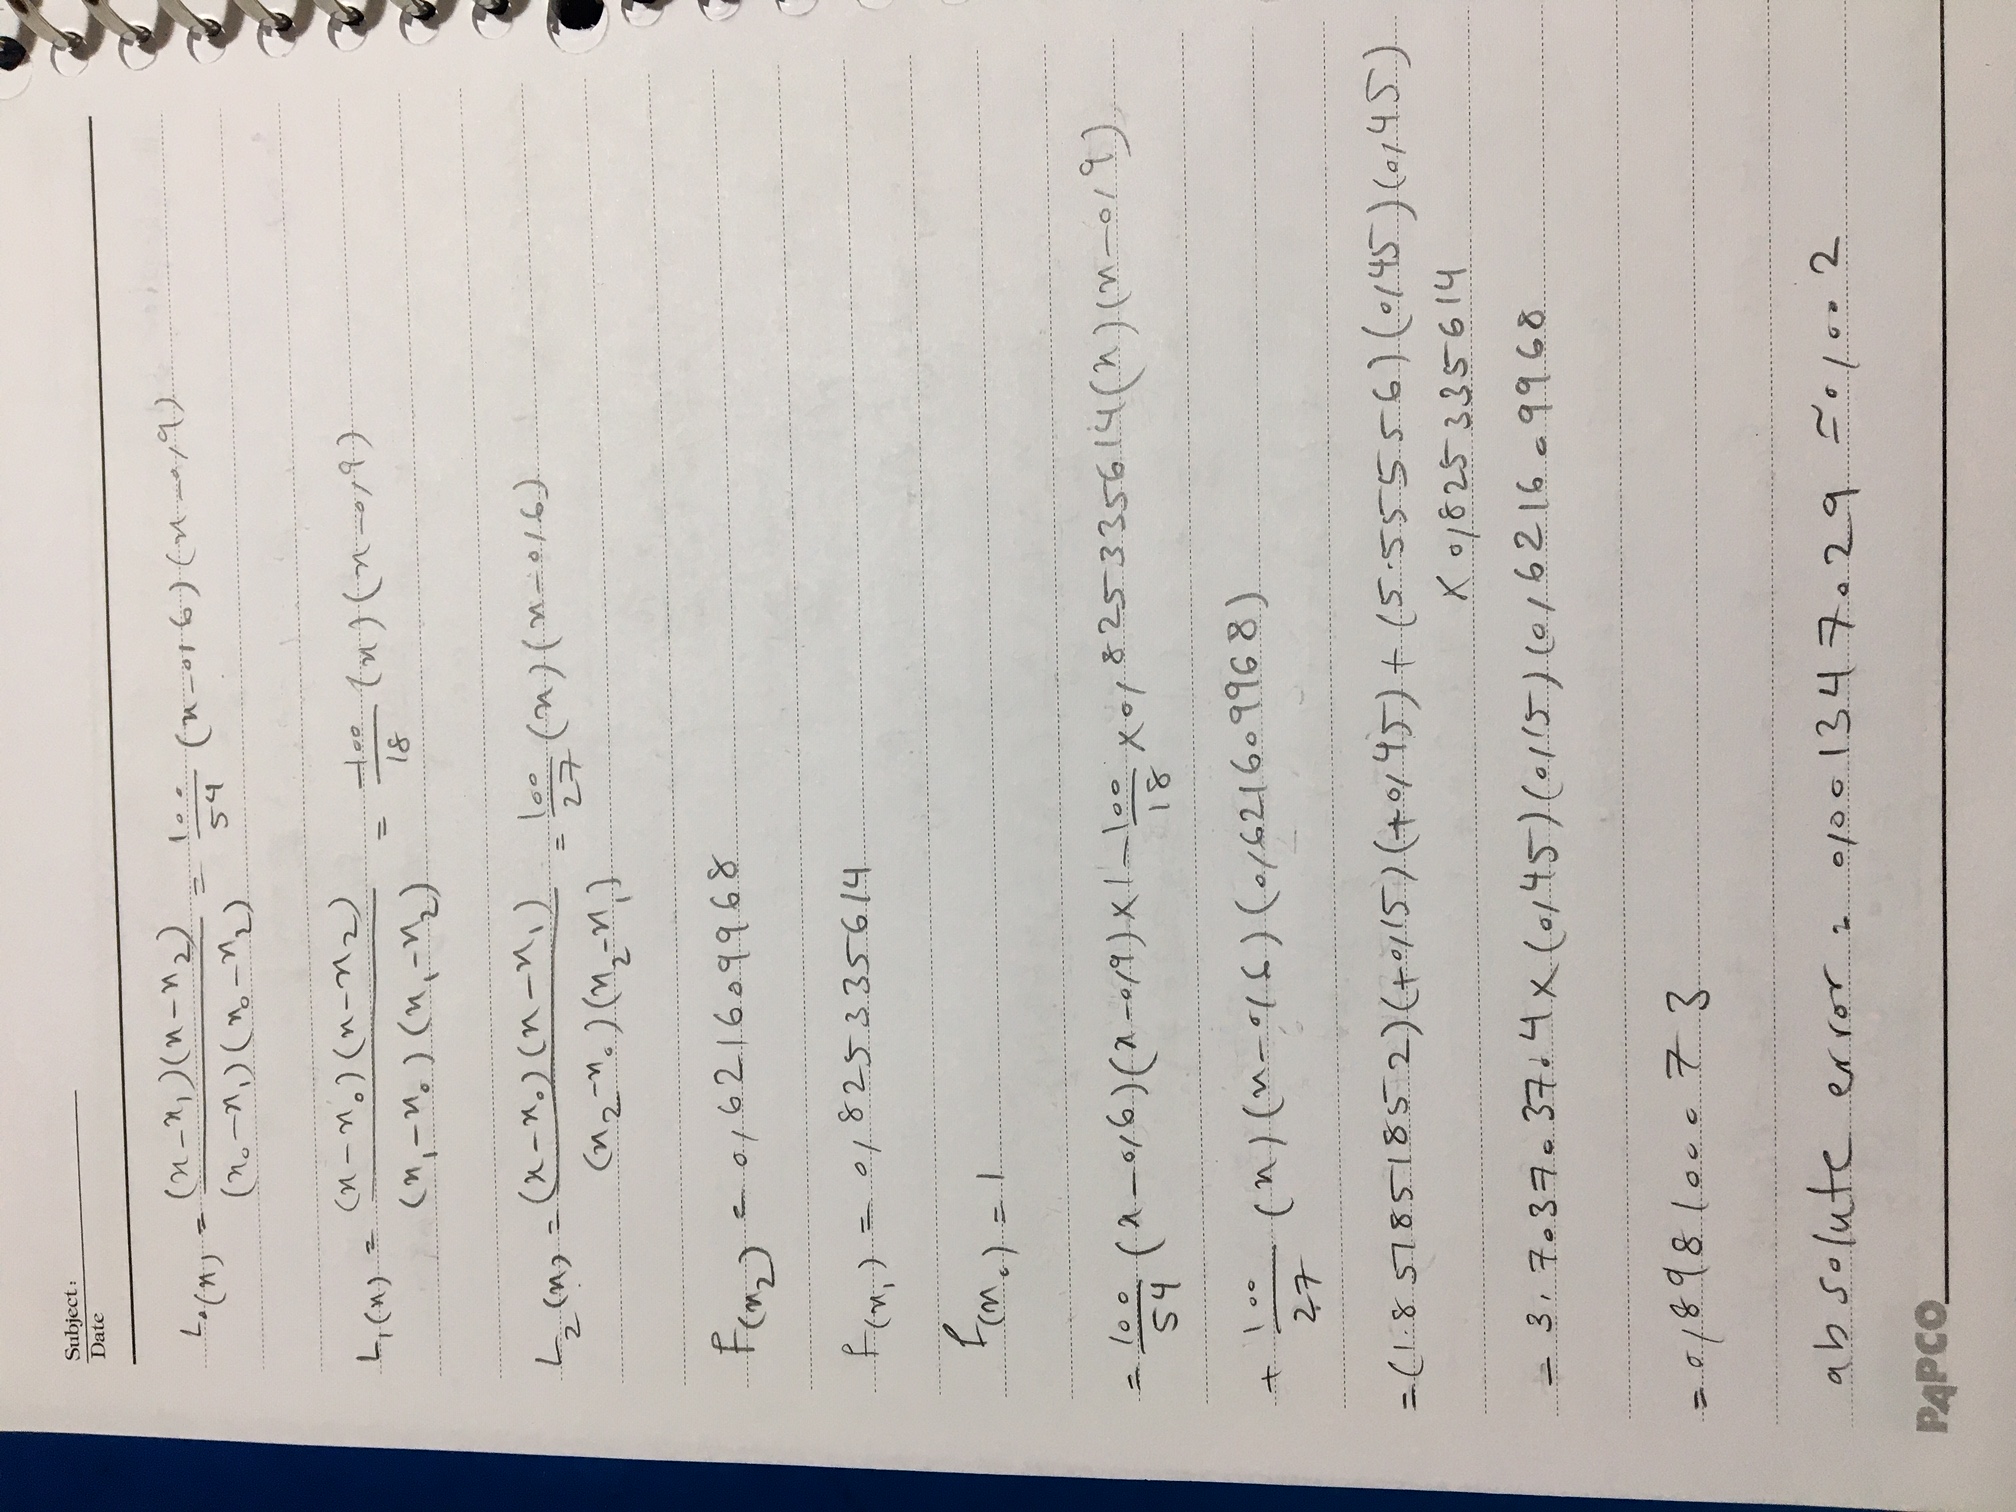 Subject:
Date
L₀(x) = (x-x₁)(x-x₂) / (x₀-x₁)(x₀-x₂) = 100/54 (x-0,6)(x-0,9)
L₁(x) = (x-x₀)(x-x₂) / (x₁-x₀)(x₁-x₂) = -100/18 (x)(x-0,9)
L₂(x) = (x-x₀)(x-x₁) / (x₂-x₀)(x₂-x₁) = 100/27 (x)(x-0,6)
f(x₂) = 0,621609968
f(x₁) = 0,825335614
f(x₀) = 1
= 100/54 (x-0,6)(x-0,9)×1 - 100/18 ×0,825335614(x)(x-0,9)
+ 100/27 (x)(x-0,6)(0,621609968)
= (1.857851852)(+0,15)(+0,45) + (5.55556)(0,45)(0,45)
× 0,825335614
- 3.703703704 × (0,45)(0,15)(0,621609968
= 0,898100073
absolute error = 0,001347029 ≃ 0,002
PAPCO